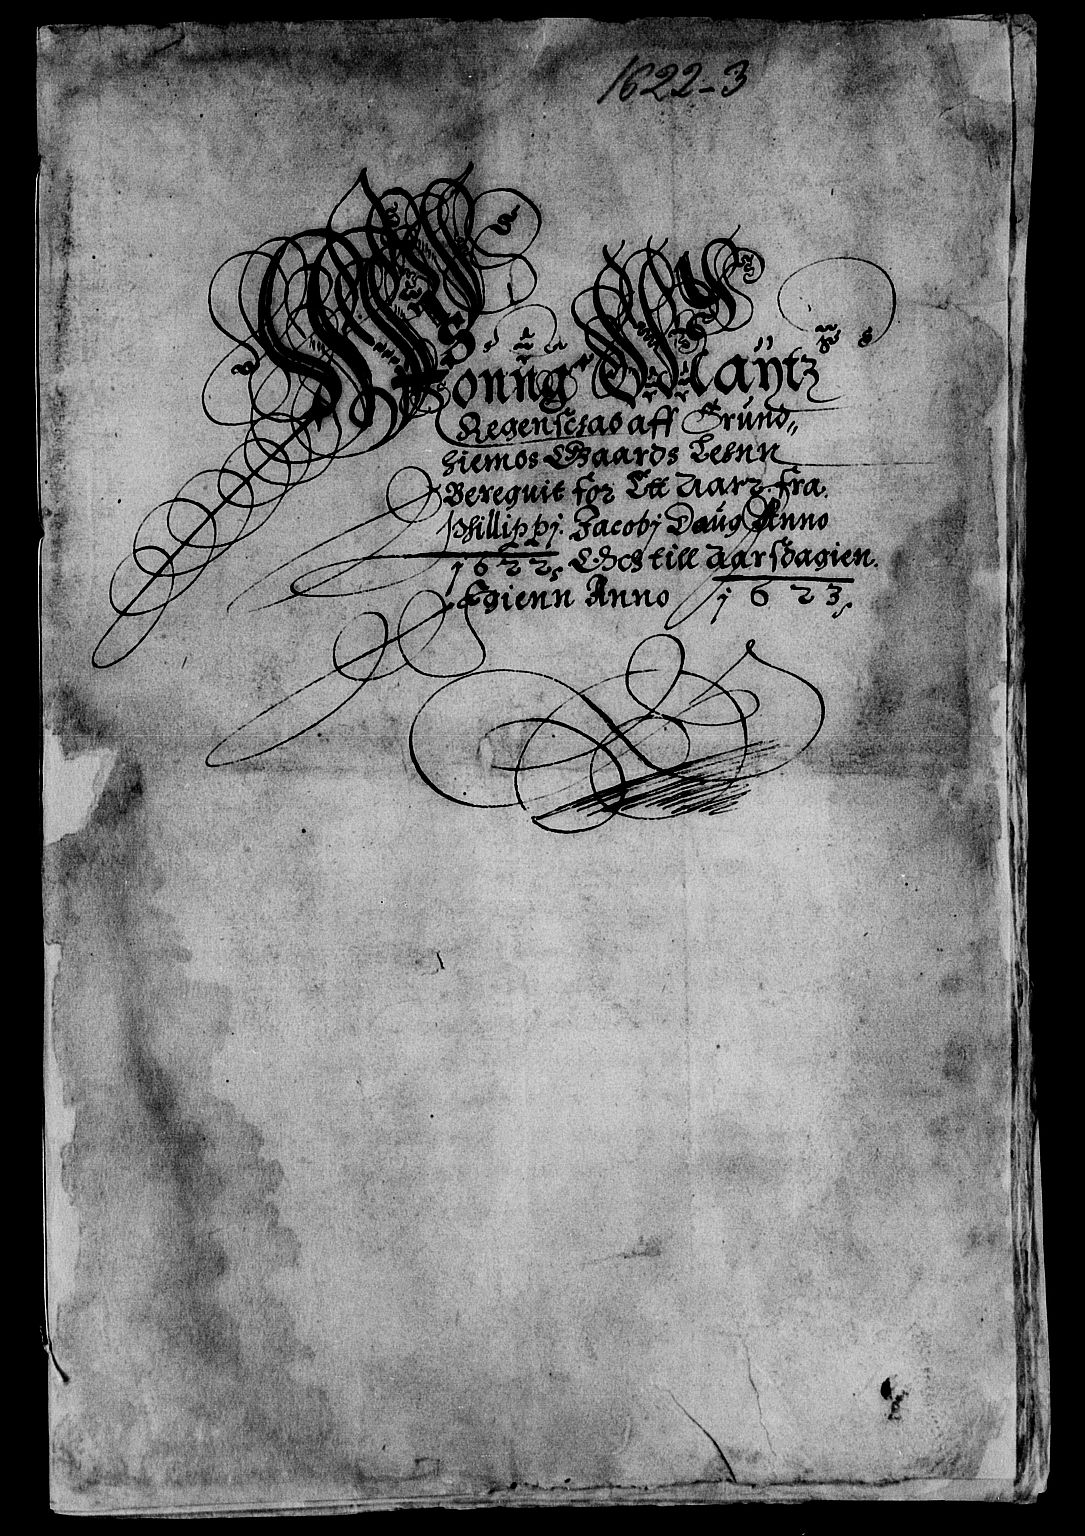 1622-3
Konng Maÿtz
Regenschab aff Trund-,,
hiembs Gaards Lehnn
Beregnit for Ett Aarz. fra.
Phillippj. Jacobj Daug Anno
1622, Och till Aarsdagien.
Egienn Anno 1623,